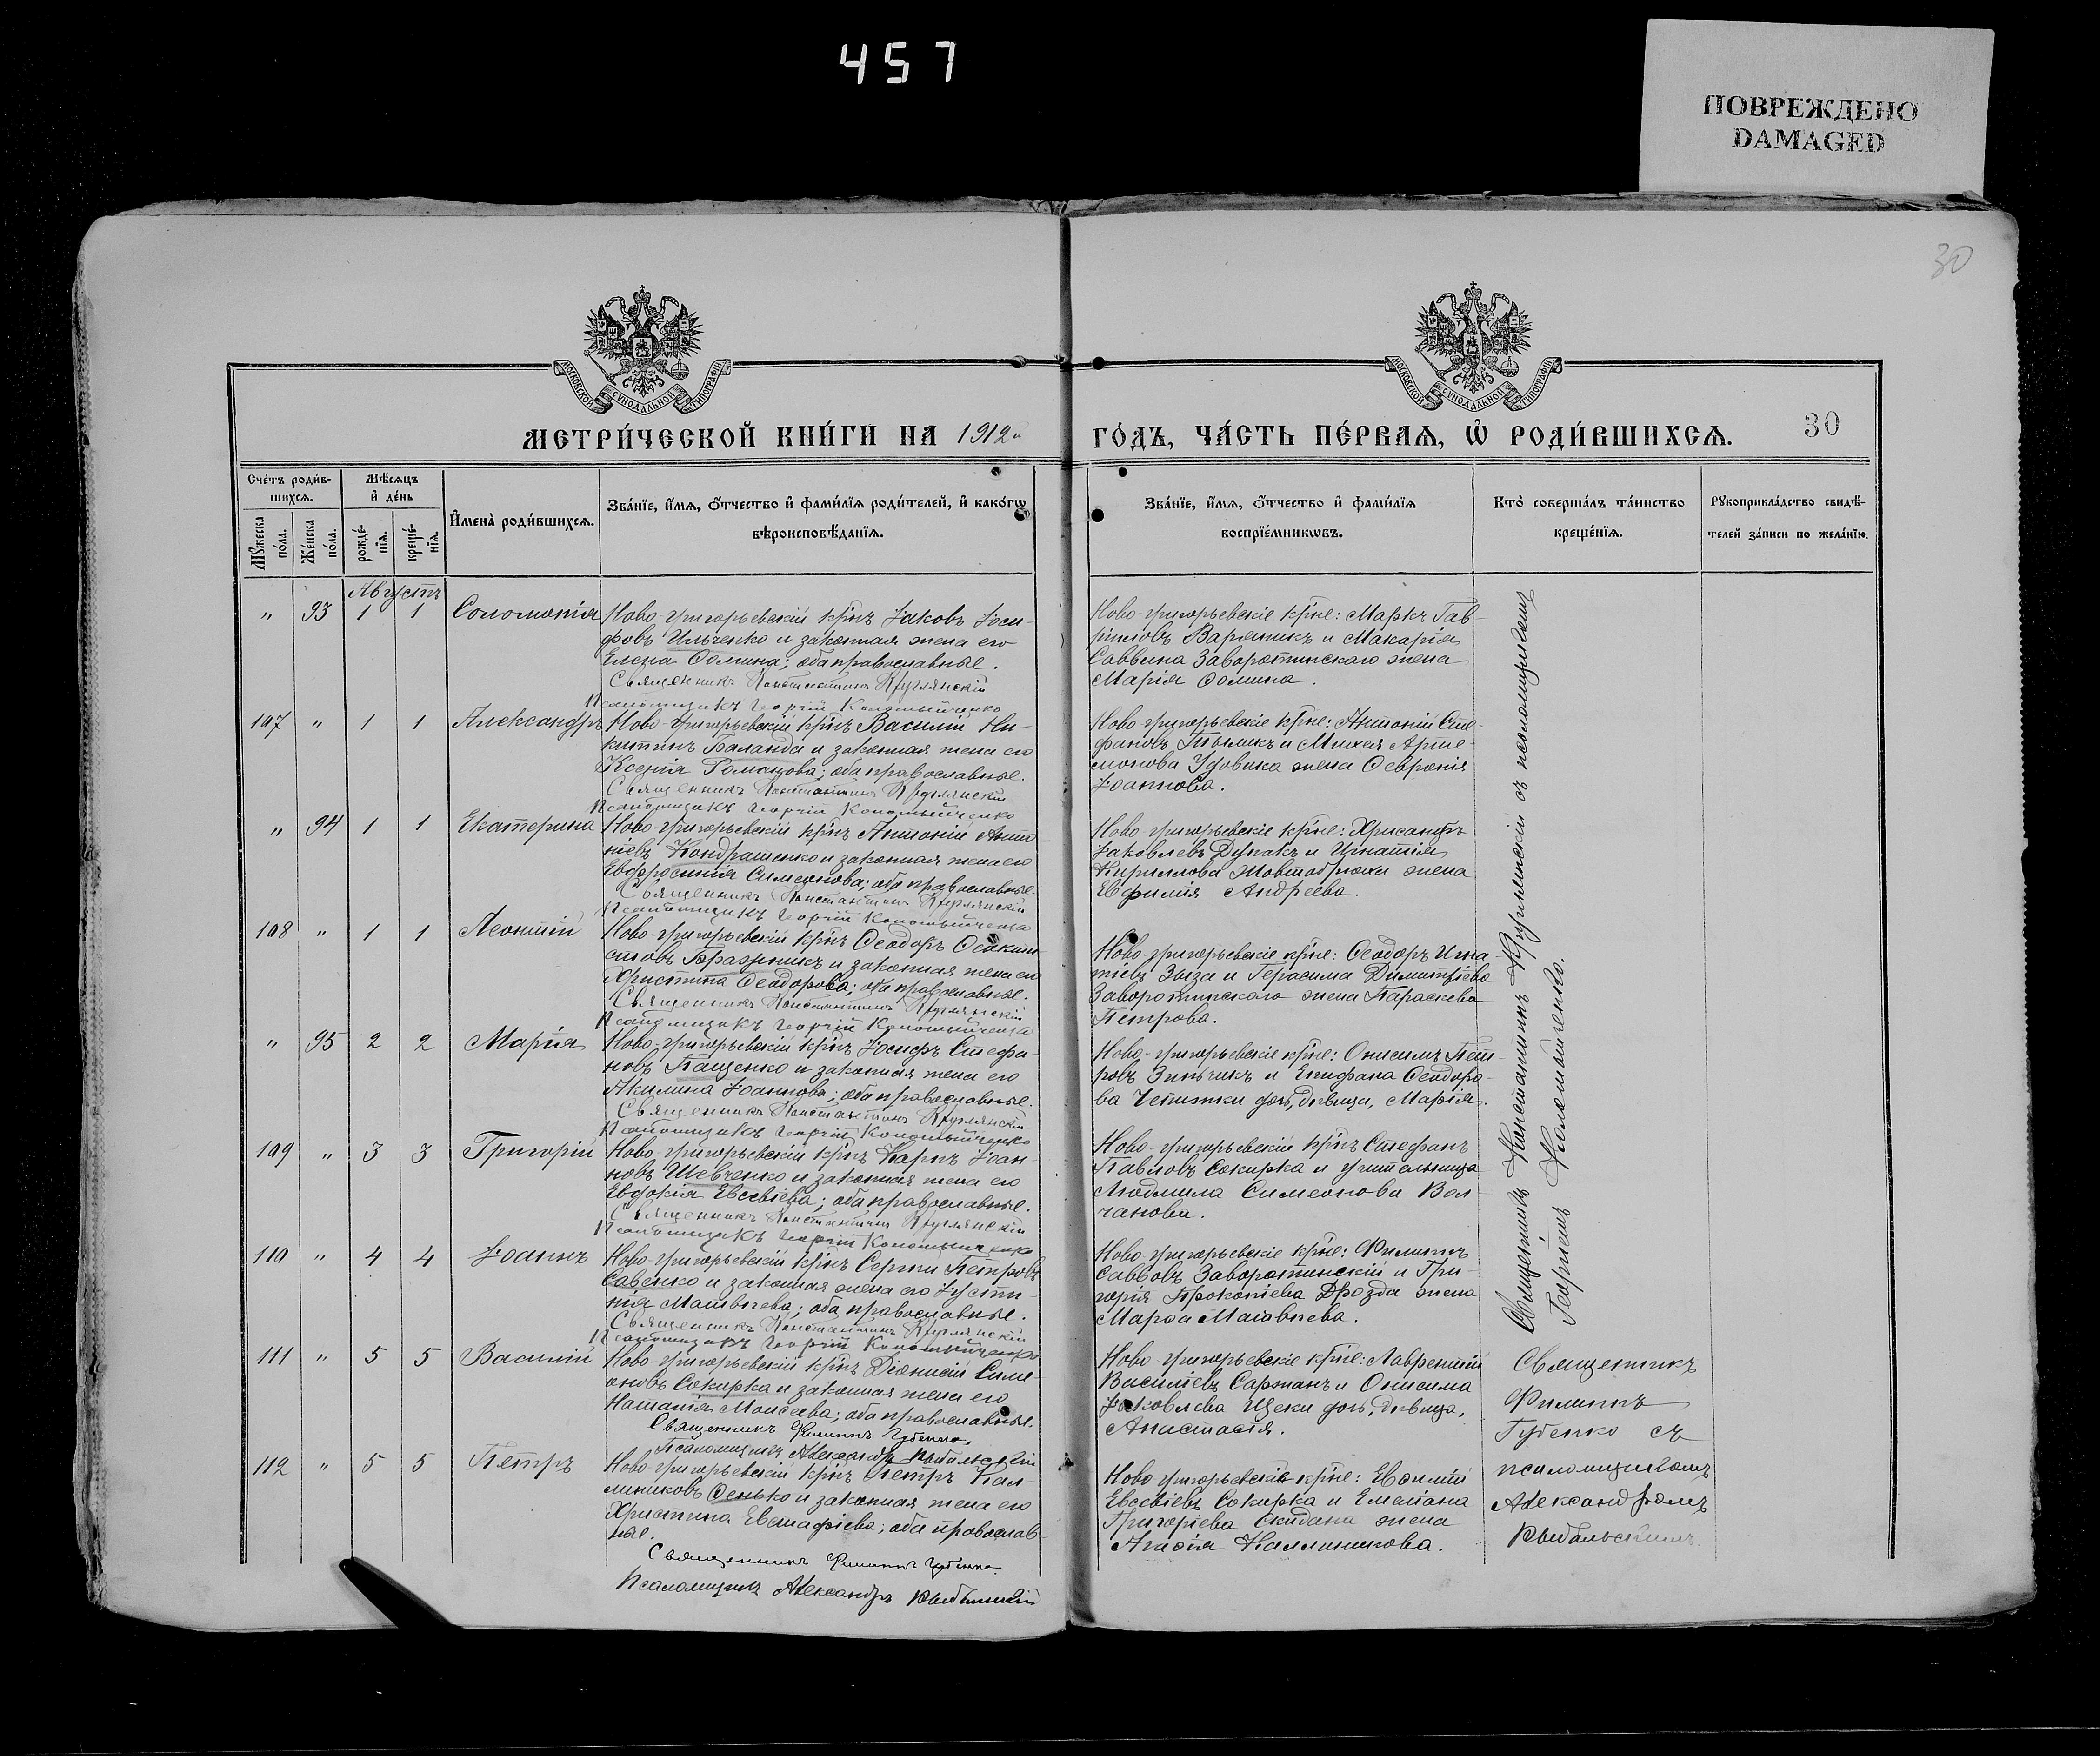 457
ПОВРЕЖДЕНО
DAMAGED
30
МОСКОВСКОЙ СУНОДАЛЬНОЙ ТИПОГРАФІИ
МОСКОВСКОЙ СУНОДАЛЬНОЙ ТИПОГРАФІИ
МЕТРИ́ЧЕСКОЙ КНИ́ГИ НА 1912
ГО́ДЪ, ЧА́СТЬ ПЕ́РВАѦ, Ѡ РОДИ́ВШИХСѦ.
30
Сче́тъ роди́в-
шихсѧ.
Мꙋжеска по́ла.
Же́нска по́ла.
Мѣ́сѧцъ
и де́нь
рожде́-
нїѧ.
креще́-
нїѧ.
Имена̀ роди́вшихсѧ.
Зва́нїе, и́мѧ, о́тчество и фами́лїѧ роди́телей, и како́гѡ
вѣроисповѣ́данїѧ.
Зва́нїе, и́мѧ, о́тчество и фами́лїѧ
воспрїе́мникѡвъ.
Кто̀ соверша́лъ та́инство
креще́нїѧ.
Рꙋкоприкла́дство свидѣ́-
телей за́писи по жела́нїю.
Августъ
" 93 1 1 Соломонія
Ново-григорьевскій кр̃нъ Іаковъ Іоси-
фовъ Ильченко и законная жена его
Елена Ѳомина; оба православные.
Священникъ Константинъ Круглянскій
Псаломщикъ Георгій Коломыйченко
Ново-григорьевскіе кр̃не: Маркъ Гав-
ріиловъ Вареникъ и Макарія
Саввина Заворотинскаго жена
Марія Ѳомина.
107 " 1 1 Александръ
Ново-григорьевскій кр̃нъ Василій Ни-
китинъ Баланда и законная жена его
Ксенія Романова; оба православные.
Священникъ Константинъ Круглянскій
Псаломщикъ Георгій Коломыйченко
Ново-григорьевскіе кр̃не: Антоній Сте-
фановъ и Михея Арте-
монова Удовика жена Ѳевронія
Іоаннова.
" 94 1 1 Екатерина
Ново-григорьевскій кр̃нъ Антоній Анто-
ніевъ Кондрашенко и законная жена его
Евфросинія Симеонова; оба православные.
Священникъ Константинъ Круглянскій
Псаломщикъ Георгій Коломыйченко
Ново-григорьевскіе кр̃не: Хрисанфъ
Іаковлевъ Дунакъ и Игнатія
Кириллова Жовтобрюха жена
Евфимія Андреева.
108 " 1 1 Леонтій
Ново-григорьевскій кр̃нъ Ѳеодоръ
Бражникъ и законная жена его
Христина Ѳеодорова; оба православные.
Священникъ Константинъ Круглянскій
Псаломщикъ Георгій Коломыйченко
Ново-григорьевскіе кр̃не: Ѳеодоръ Игна-
тіевъ Зыза и Герасима Димитріева
Заворотинскаго жена Параскева
Петрова.
" 95 2 2 Марія
Ново-григорьевскій кр̃нъ Іосифъ Стефа-
новъ Пащенко и законная жена его
Акилина Іоаннова; оба православные.
Священникъ Константинъ Круглянскій
Псаломщикъ Георгій Коломыйченко
Ново-григорьевскіе кр̃не: Онисимъ Пет-
ровъ Зинчикъ и Епифана Ѳеодоро-
ва Чепижки дочь, дѣвица, Марія.
109 " 3 3 Григорій
Ново-григорьевскій кр̃нъ Карпъ Іоан-
новъ Шевченко и законная жена его
Евдокія Евсевіева; оба православные.
Священникъ Константинъ Круглянскій
Псаломщикъ Георгій Коломыйченко
Ново-григорьевскій кр̃нъ Стефанъ
Павловъ Сокирка и учительница
Людмила Симеонова Вол-
чанова.
110 " 4 4 Іоаннъ
Ново-григорьевскій кр̃нъ Сергій Петровъ
Савенко и законная жена его Іусти-
нія Матвѣева; оба православные.
Священникъ Константинъ Круглянскій
Псаломщикъ Георгій Коломыйченко
Ново-григорьевскіе кр̃не: Филиппъ
Саввовъ Заворотинскій и Гри-
горія Прокопіева Дрозда жена
Марѳа Матвѣева.
Священникъ Константинъ Круглянскій съ псаломщикомъ
Георгіемъ Коломыйченко.
111 " 5 5 Василій
Ново-григорьевскій кр̃нъ Діонисій Симе-
оновъ Сокирка и законная жена его
Наталія Моисеева; оба православные.
Священникъ Филиппъ Губенко
Псаломщикъ Александръ Рыбальскій
Ново-григорьевскіе кр̃не: Лаврентій
Василіевъ Саржанъ и Онисима
Іаковлева Щеки дочь, дѣвица,
Анастасія.
Священникъ
Филиппъ
Губенко съ
псаломщикомъ
Александромъ
Рыбальскимъ
112 " 5 5 Петръ
Ново-григорьевскій кр̃нъ Петръ Кал-
линиковъ Сенько и законная жена его
Христина Евстафіева; оба православ-
ные.
Священникъ Филиппъ Губенко
Псаломщикъ Александръ Рыбальскій
Ново-григорьевскіе кр̃не: Евѳимій
Евсевіевъ Сокирка и Емеліана
Григоріева Скидана жена
Агаѳія Каллиникова.